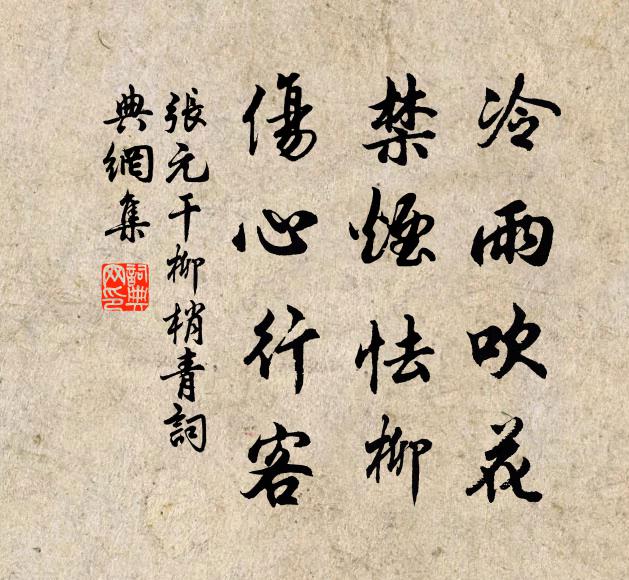 冷雨吹花
禁煙怯柳
傷心行客
張元干柳梢青詞
典網集
詞典网印